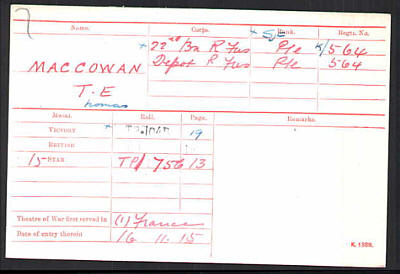 Name. Corps. Rank. Regtl. No.
22nd/Bn R Fus Pte K/564
MACCOWAN Depot R Fus Pte 564
T. E
Thomas
Medal. Roll. Page. Remarks.
VICTORY 19
BRITISH
15 STAR TP/ 75C 13
Theatre of War first served in (1) France
Date of entry therein 16 11. 15
K. 1380.